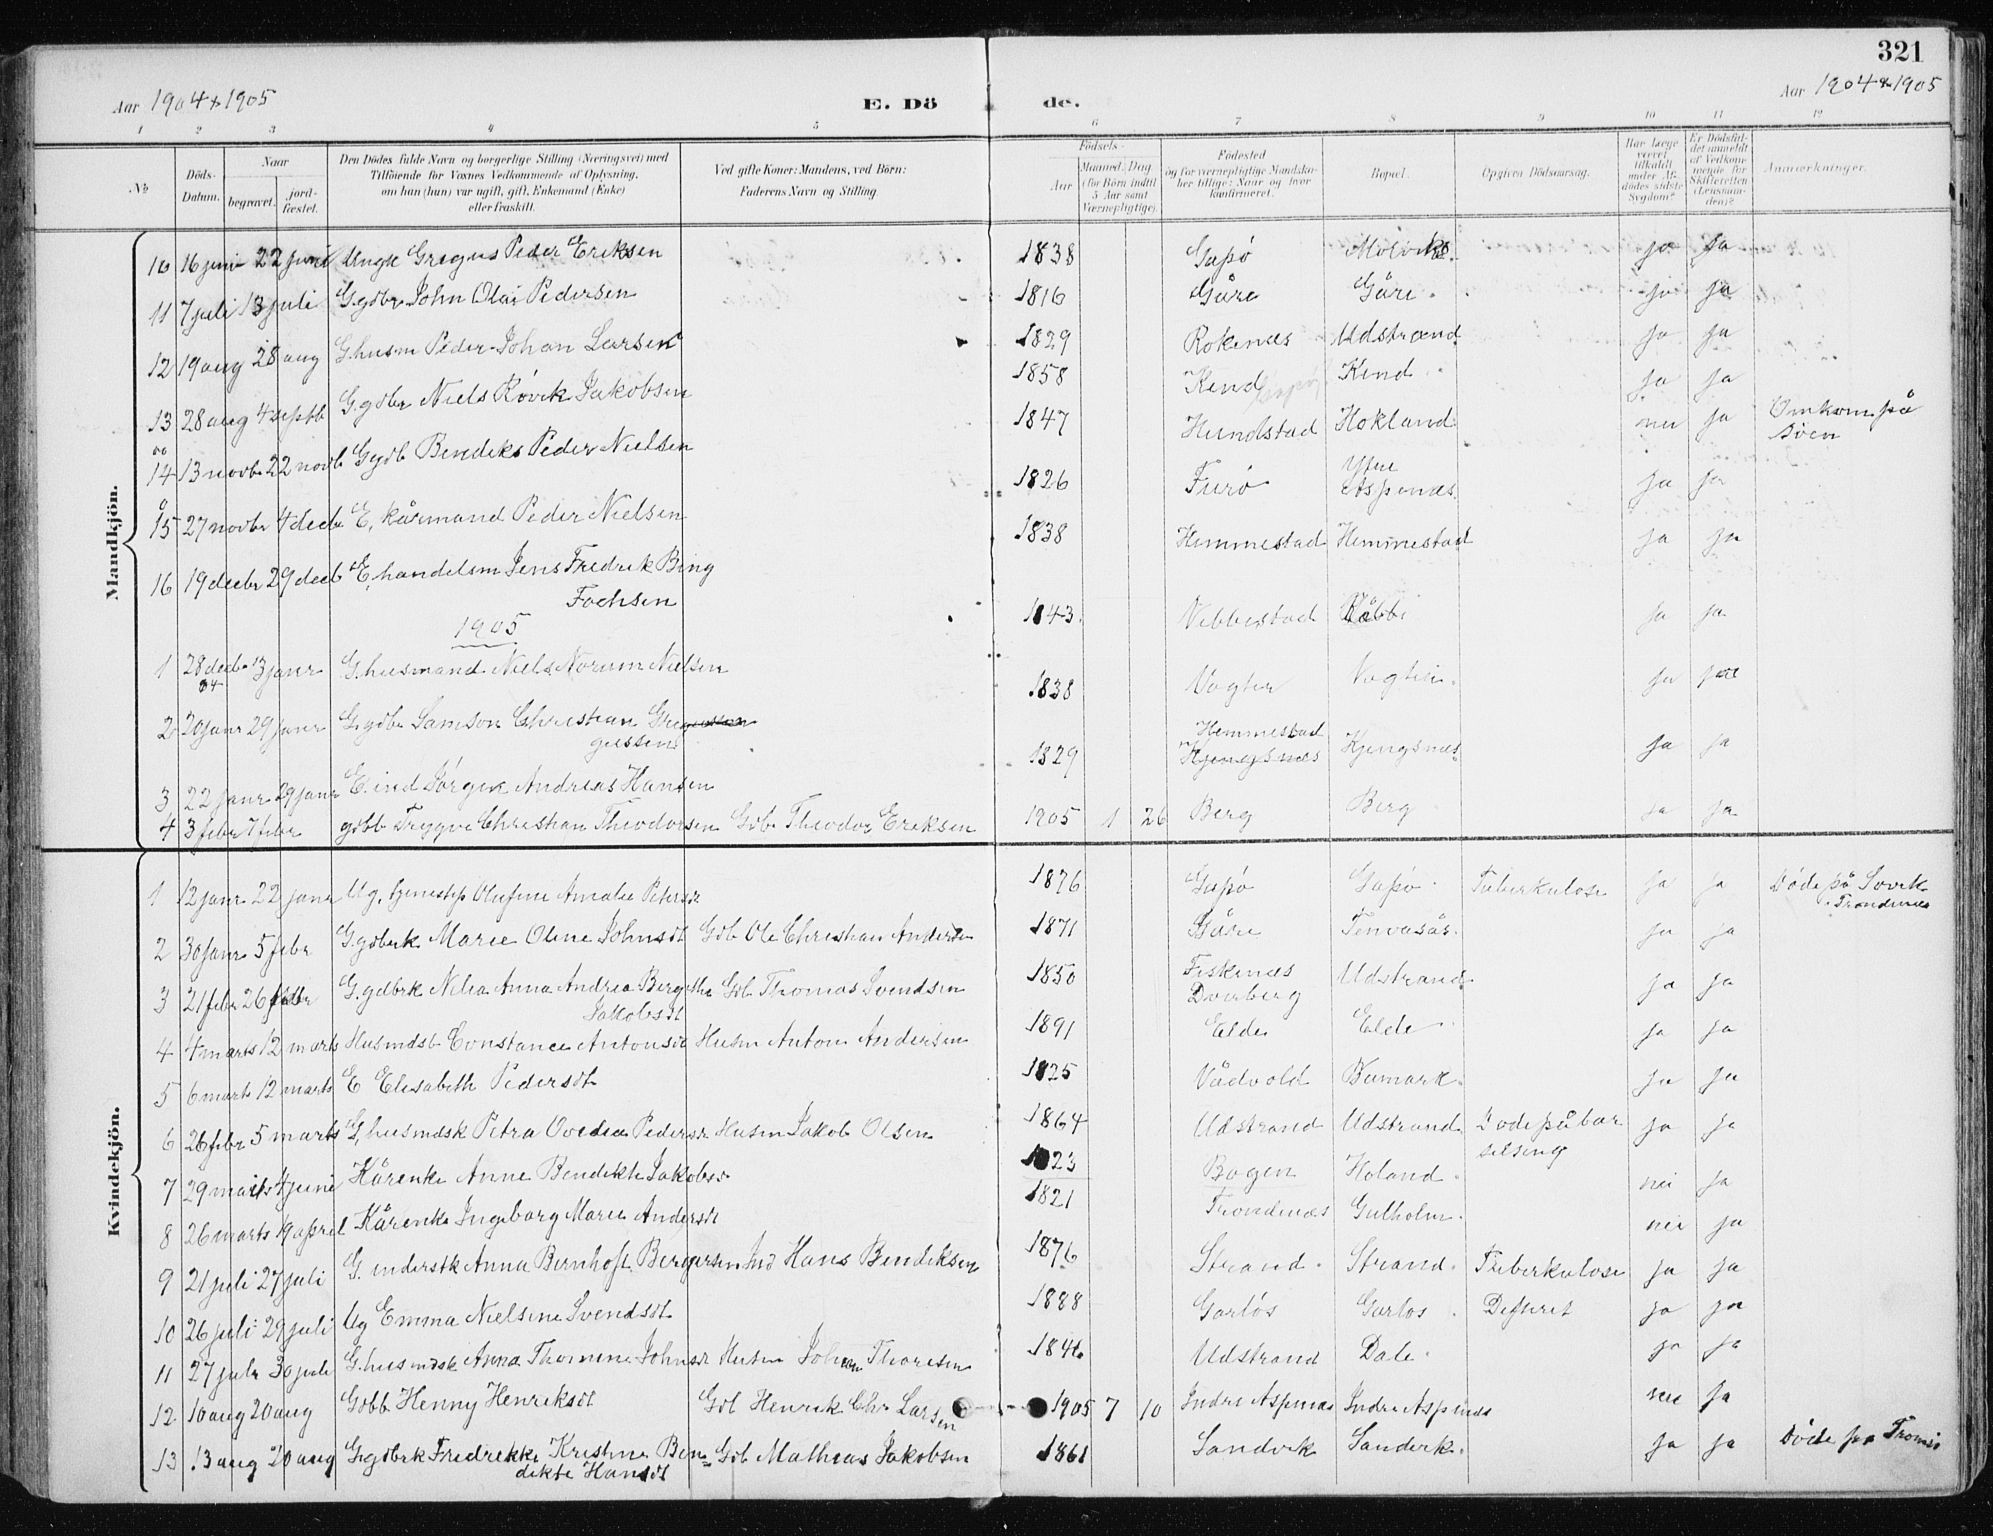 321
Aar 1904 & 1905 E. Dö de. Aar 1904 & 1905
1 2 3 4 5 6 7 8 9 10 11 12
No Döds-Datum. Naar begravet. jord-fæstet. Den Dödes fulde Navn og borgerlige Stilling (Næringsvei) med Tilföiende for Voxnes Vedkommende af Oplysning, om han (hun) var ugift, gift, Enkemand (Enke) eller fraskilt. Ved gifte Koner: Mandens, ved Börn: Faderens Navn og Stilling. Födsels- Aar Maaned. Dag (for Börn indtil 5 Aar samt Værnepligtige). Födested og for værnepligtige Mandskaber tillige: Naar og hvor konfirmeret. Bopæl. Opgiven Dödsaarsag. Har læge været tilkaldt under Afdödes sidste Sygdom? Er Dödsfaldet anmeldt af Vedkommende for Skifteretten (Lensmanden)? Anmærkninger.
Mandkjön.
10 16 juni 22 juni Ungk Gregus Peder Eriksen 1838 Gapø Molvik. ja ja
11 7 juli 13 juli G.gdbr John Olai Pedersen 1816 Gåre Gåre. ja ja
12 19 aug 28 aug G.husm Peder Johan Larsen 1829 Rokenæs Udstrand ja ja
13 28 aug 4 septb G.gdbr Niels Røvik Jakobsen 1858 Kind Kind ja ja
14 13 novbr 22 novb Ggdb Bendiks Peder Nielsen 1847 Hundstad Hokland nei ja Omkom på søen
15 27 novbr 4 decbr E. kårmand Peder Nielsen 1826 Furø Ytre Aspenæs ja ja
16 19 decbr 29 decb E, handelsm Jens Fredrek Bing Fochsen 1838 Hemmestad Hemmestad ja ja
1905
1 28 decb 04 13 janr G.husmand Niels Norum Nielsen 1843 Vebbestad Råbbi ja ja
2 20 janr 29 janr G.gdbr Samson Christian Gregussen 1838 Vogter Vogter. ja ja
gussen
3 22 janr 29 janr E. ind Jørgen Andreas Hansen 1829 Hemmestad Kjengsnæs Kjengsnæs ja ja
4 3 febr 7 febr gdbb Trygve Christian Theodorsen Gdb Theodor Eriksen 1905 1 26 Berg Berg ja ja
Kvindekjön.
1 12 janr 22 janr Ug. tjenestep Olufine Amalie Petersdt 1876 Gapø Gapø Tuberkulose ja ja Døde på Sovik Trondenes
2 30 janr 5 febr G.gdbrk Marie Oline Johnsdt Gdb Ole Christian Andersen 1871 Gåre Tenvasås. ja ja
3 21 febr 26 febr G.gdbrk Nelia Anna Andrea Bergethe Jakobsdt Gdb Thomas Svendsen 1850 Fiskenæs Dverberg Udstrand ja ja
4 4 marts 12 marts Husmdsb Constance Antonsdt Husm Anton Andersen 1891 Elde Elde ja ja
5 6 marts 12 marts E Elisabeth Pedersdt 1825 Vådvold Bumark. ja ja
6 26 febr 5 marts G.husmdsk Petra Ovedea Pedersdt Husm Jakob Olsen 1864 Udstrand Udstrand Døde på barselseng ja ja
7 29 marts 4 juni Kårenke Anne Bendikte Jakobsd 1823 Bogen Holand. nei ja
8 26 marts 19 april Kårenke Ingeborg Marie Andersdt 1821 Trondenæs Gulholm. nei ja
9 21 juli 27 juli G. inderstk Anna Bernhoft Bergersen Ind Hans Bendiksen 1876 Strand. Strand. Tuberkulose ja ja
10 26 juli 29 juli Ug Emma Nielsine Svendsdt 1888 Garløs Garløs. Difterit ja ja
11 27 juli 30 juli G.husmdsk Anna Thomine Johnsdt Husm Johan Thoresen 1846 Udstrand Dale. ja ja
12 10 aug 20 aug Gdbb Henny Henriksdt Gdb Henrik Chr Larsen 1905 7 10 Indre Aspenæs Indre Aspenæs nei ja
13 13 aug 20 aug G.gdbrk Fredrekke Kristine Bendikte Hansdt Gdb Mathias Jakobsen 1861 Sandvik Sandvik. ja ja Døde på Tromsø